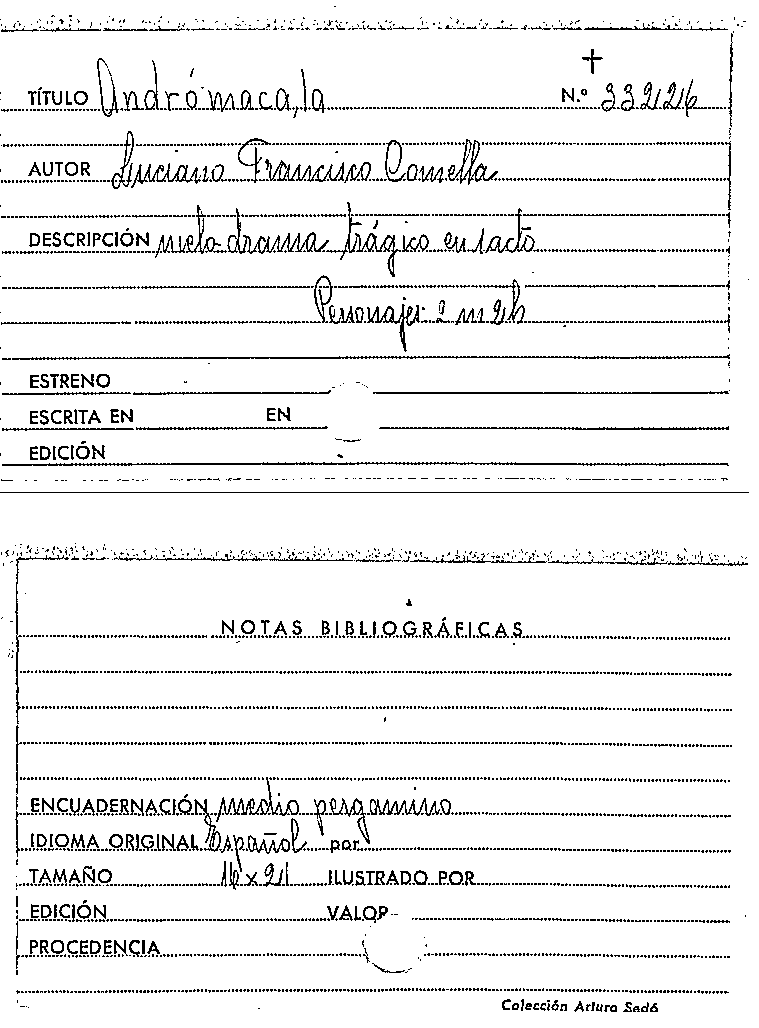 TÍTULO Andrómaca, la
N.º 33226
AUTOR Luciano Francisco Comella
DESCRIPCIÓN melo-drama trágico en 1 acto
Personajes 2 m 2 h
ESTRENO
ESCRITA EN EN
EDICIÓN
NOTAS BIBLIOGRÁFICAS
ENCUADERNACIÓN medio pergamino
IDIOMA ORIGINAL Español por
TAMAÑO 16 x 21 ILUSTRADO POR
EDICIÓN VALOR
PROCEDENCIA
Colección Arturo Sedó